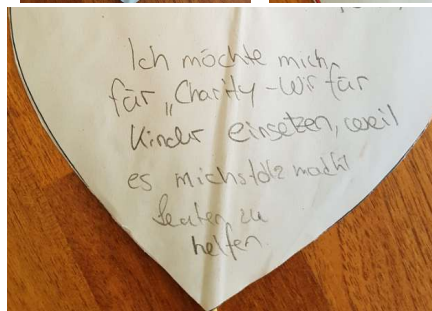 Ich möchte mich
für „Charity - Wir für
Kinder einsetzen, weil
es mich stolz macht
Leuten zu
helfen.